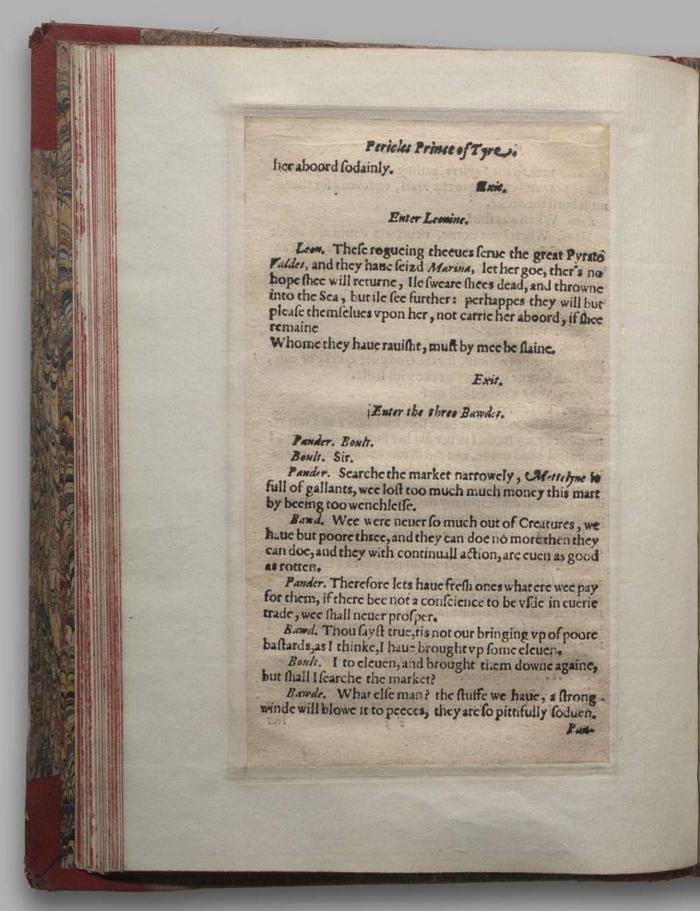 Pericles Prince of Tyre.
her aboord ſodainly.
Exit.
Enter Leonine.
Leon. Theſe rogueing theeues ſerue the great Pyrato
Valdes, and they haue ſeizd Marina, let her goe, ther's no
hope ſhee will returne, Ile ſweare ſhees dead, and throwne
into the Sea, but ile ſee further: perhappes they will but
pleaſe themſelues vpon her, not carrie her aboord, if ſhee
remaine
Whome they haue rauiſht, muſt by mee be ſlaine.
Exit.
Enter the three Bawdes.
Pander. Boult.
Boult. Sir.
Pander. Searche the market narrowely, Mettelyne is
full of gallants, wee loſt too much much money this mart
by beeing too wenchleſſe.
Bawd. Wee were neuer ſo much out of Creatures, we
haue but poore three, and they can doe no more then they
can doe, and they with continuall action, are euen as good
as rotten.
Pander. Therefore lets haue freſh ones what ere wee pay
for them, if there bee not a conſcience to be vſde in euerie
trade, wee ſhall neuer proſper.
Bawd. Thou ſayſt true, tis not our bringing vp of poore
baſtards, as I thinke, I haue brought vp ſome eleuen.
Boult. I to eleuen, and brought them downe againe,
but ſhall I ſearche the market?
Bawde. What elſe man? the ſtuffe we haue, a ſtrong
winde will blowe it to peeces, they are ſo pittifully ſodden.
Pan-